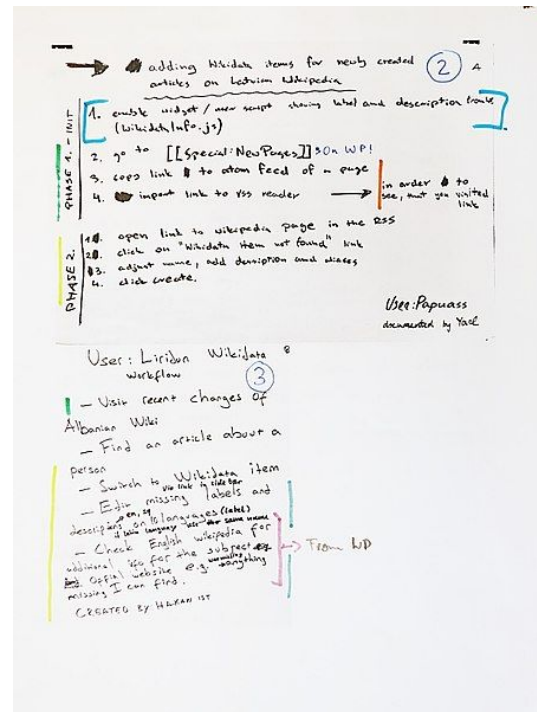 adding Wikidata items for newly created
articles on Latvian Wikipedia
2
PHASE 1. - INIT
1. enable widget / user script showing label and description
(WikidataInfo.js)
2. go to [[Special:NewPages]] On WP!
3. copy link to atom feed of a page
4. import link to rss reader
in order to
see, that you visited
link
PHASE 2.
1. open link to wikipedia page in the RSS
2. click on "Wikidata item not found" link
3. adjust name, add description and aliases
4. click create.
User:Papuass
documented by Yael
User: Liridon Wikidata
workflow
3
- Visit recent changes of
Albanian Wiki
- Find an article about a
person
- Switch to Wikidata item
via link in side bar
- Edit missing labels and
en, sq
descriptions on 10 languages (label)
if latin language same name
- Check English wikipedia for
additional info for the subject
website e.g. anything
missing I can find.
From WP
CREATED BY HAKAN IST